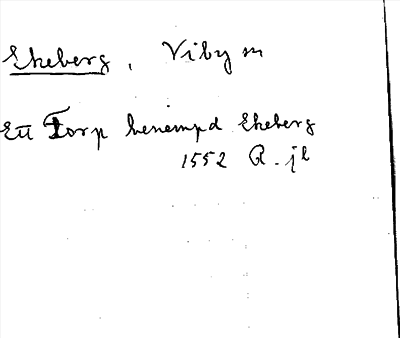 Ekeberg, Viby sn
Ett Torp benempd Ekeberg
1552 R. jb